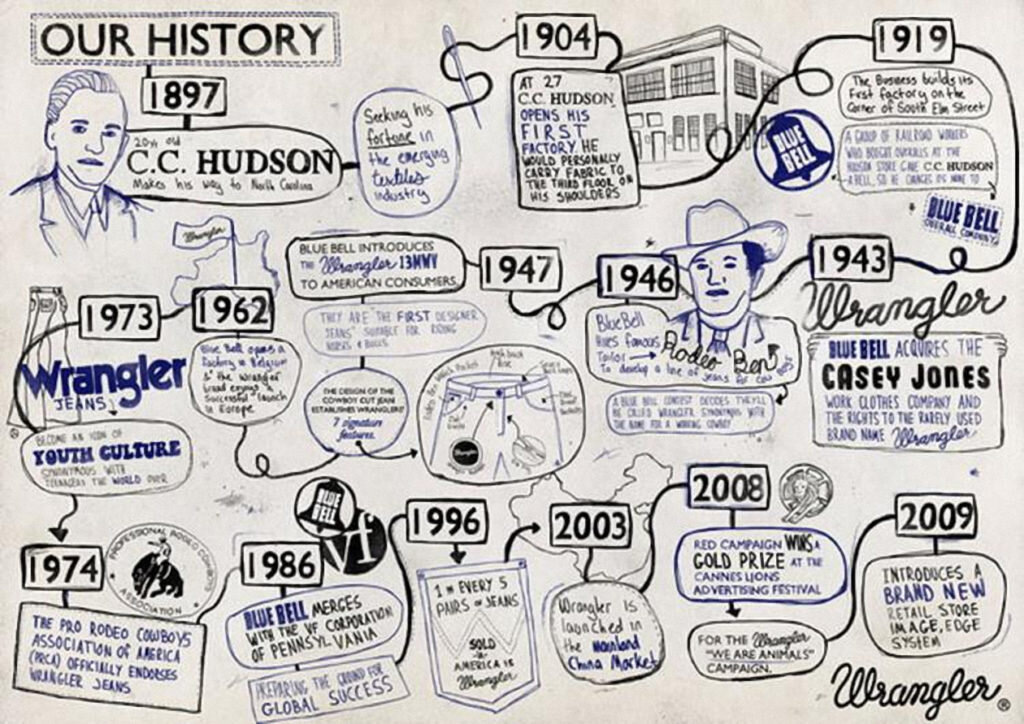 OUR HISTORY
1897
20yr old
C.C. HUDSON
Makes his way to North Carolina
Seeking his
fortune in
the emerging
textiles
industry
1904
AT 27
C.C. HUDSON
OPENS HIS
FIRST
FACTORY. HE
WOULD PERSONALLY
CARRY FABRIC TO
THE THIRD FLOOR ON
HIS SHOULDERS
1919
The Business builds its
First factory on the
Corner of South Elm Street
BLUE
BELL
A GROUP OF RAILROAD WORKERS
WHO BOUGHT OVERALLS AT THE
HUDSON STORE GAVE C.C. HUDSON
A BELL, SO HE CHANGES ITS NAME TO
BLUE BELL
OVERALL COMPANY
1943
Wrangler
BLUE BELL ACQUIRES THE
CASEY JONES
WORK CLOTHES COMPANY AND
THE RIGHTS TO THE RARELY USED
BRAND NAME Wrangler
1946
Blue Bell
Hires famous
Tailor Rodeo Ben
To develop a line of jeans for Cow Boys
A BLUE BELL CONTEST DECIDES THEY'LL
BE CALLED WRANGLER SYNONYMOUS WITH
THE NAME FOR A WORKING COWBOY
1947
BLUE BELL INTRODUCES
THE Wrangler 13MWV
TO AMERICAN CONSUMERS
THEY ARE THE FIRST DESIGNER
JEANS SUITABLE FOR RIDING
HORSES & BULLS
THE DESIGN OF THE
COWBOY CUT JEAN
ESTABLISHES WRANGLERS'
7 signature
features.
Wrangler
1962
Wrangler
Blue Bell opens a
Factory in Belgium
& the Wrangler
brand enjoys a
Successful launch
in Europe
1973
Wrangler
JEANS
BECOME AN ICON OF
YOUTH CULTURE
SYNONYMOUS WITH
TEENAGERS THE WORLD OVER
1974
PROFESSIONAL RODEO COWBOYS
ASSOCIATION
THE PRO RODEO COWBOYS
ASSOCIATION OF AMERICA
(PRCA) OFFICIALLY ENDORSES
WRANGLER JEANS
1986
BLUE
BELL
vf
BLUE BELL MERGES
WITH THE VF CORPORATION
OF PENNSYLVANIA
PREPARING THE GROUND FOR
GLOBAL SUCCESS
1996
1 IN EVERY 5
PAIRS OF JEANS
SOLD
IN
AMERICA IS
Wrangler
2003
Wrangler is
launched in
the mainland
China Market
2008
RED CAMPAIGN WINS A
GOLD PRIZE AT THE
CANNES LIONS
ADVERTISING FESTIVAL
FOR THE Wrangler
"WE ARE ANIMALS"
CAMPAIGN.
2009
INTRODUCES A
BRAND NEW
RETAIL STORE
IMAGE, EDGE
SYSTEM
Wrangler®